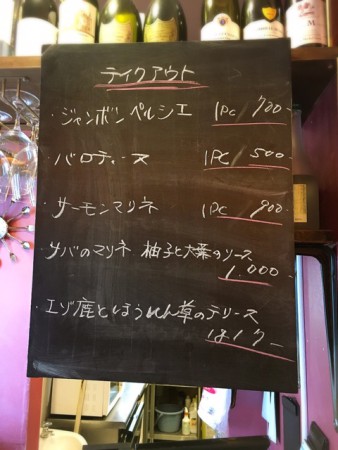 テイクアウト
・ジャンボンペルシエ 1PC/700-
・バロティーヌ 1PC/500-
・サーモンマリネ 1PC/900-
・サバのマリネ 柚子と大葉のソース
1,000
・エゾ鹿とほうれん草のテリーヌ